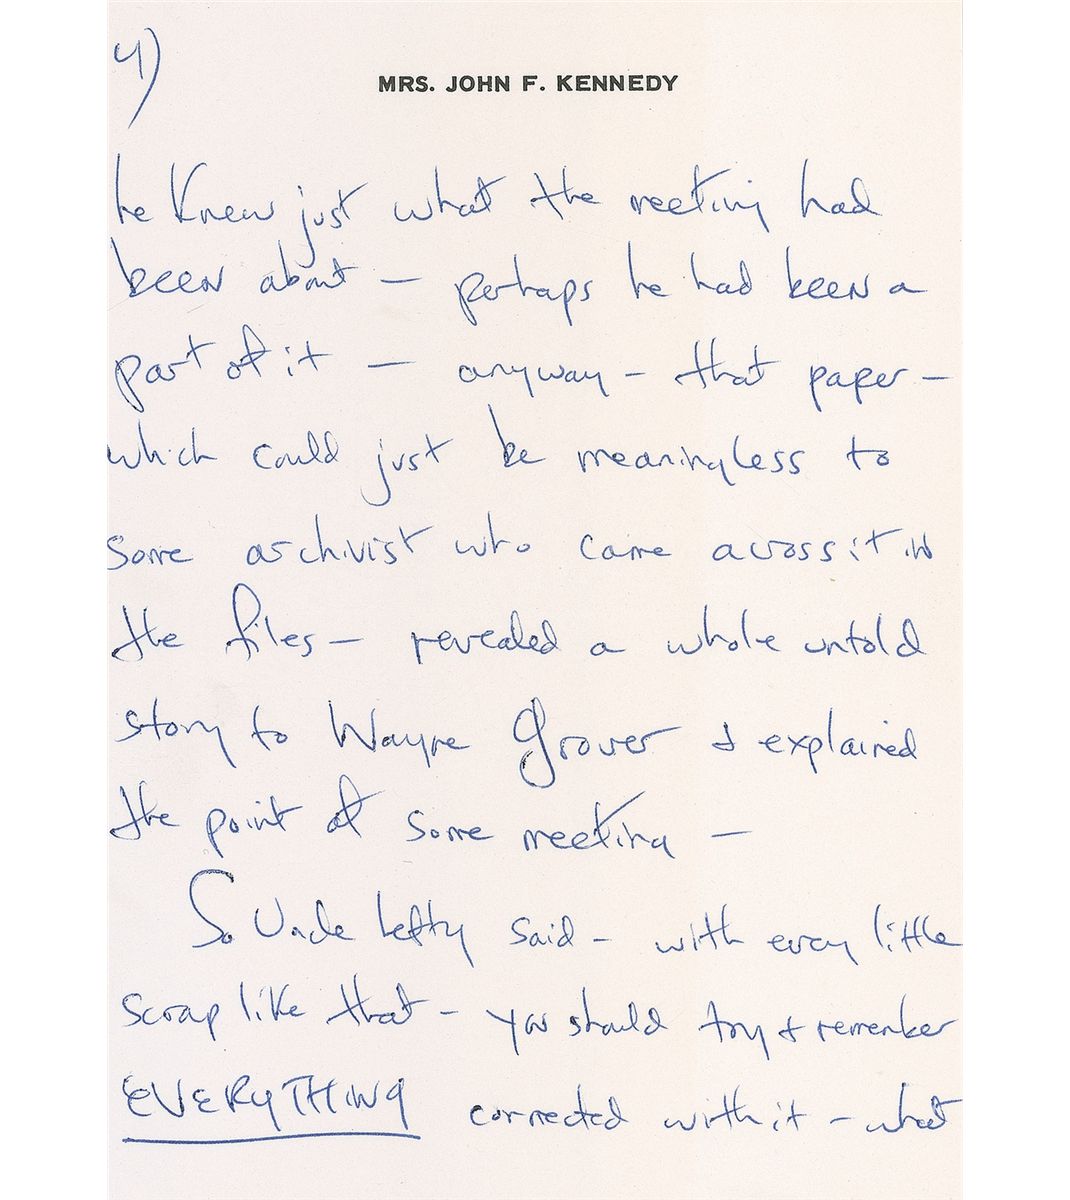 4)
MRS. JOHN F. KENNEDY
he knew just what the meeting had
been about — perhaps he had been a
part of it — anyway – that paper –
which could just be meaningless to
some archivist who came across it in
the files – revealed a whole untold
story to Wayne Grover & explained
the point of some meeting –
So Uncle Lefty said – with every little
scrap like that – you should try & remember
EVERYTHING connected with it – what